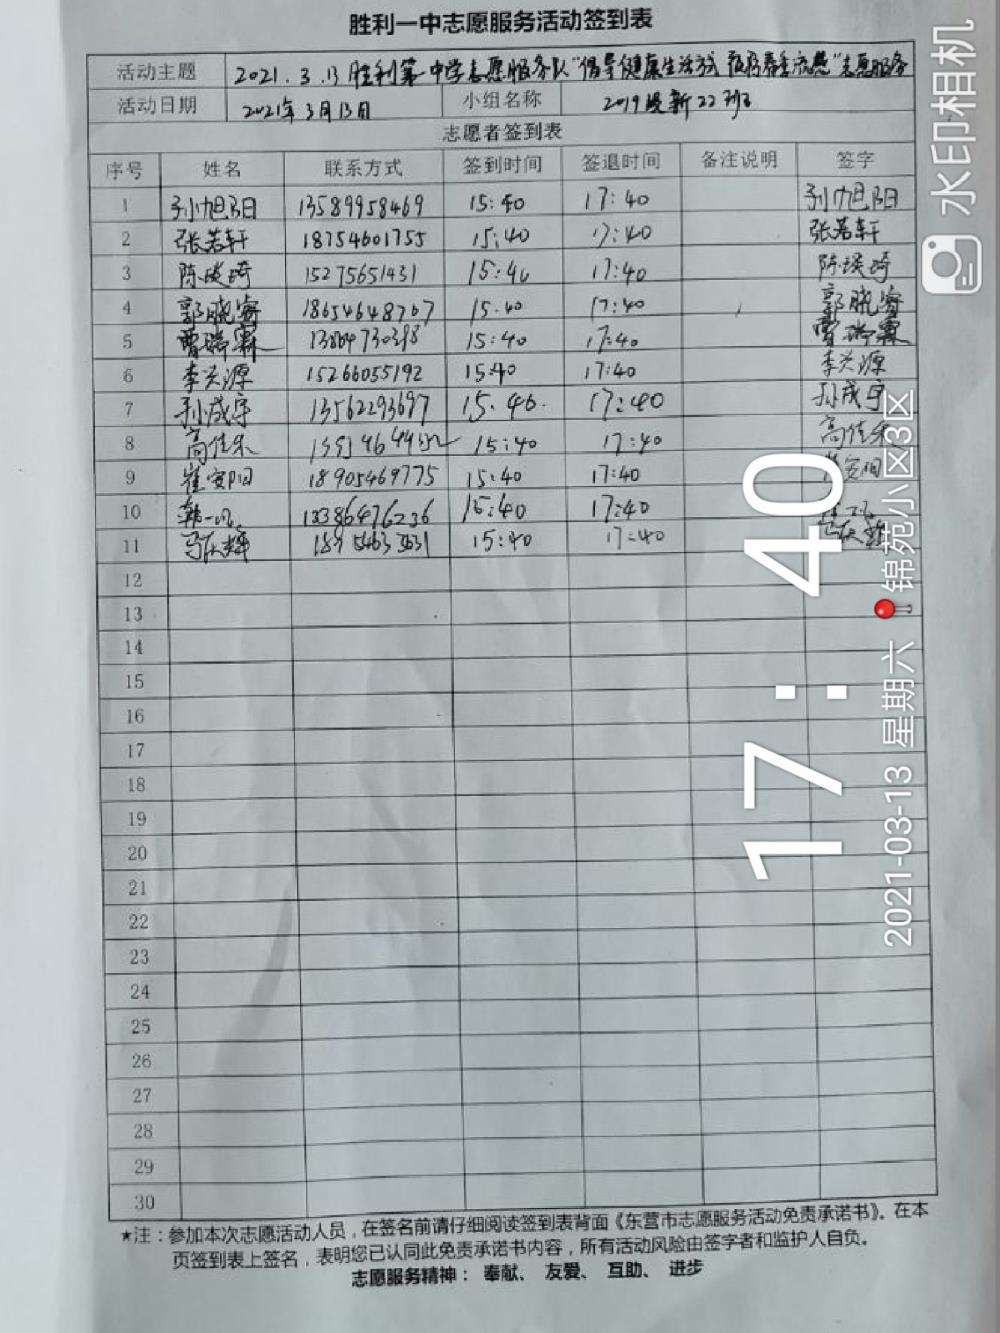 胜利一中志愿服务活动签到表
活动主题 2021.3.13 胜利第一中学志愿服务队"倡导健康生活方式 预防春季流感"志愿服务
活动日期 2021年3月13日 小组名称 2019级新22班
志愿者签到表
序号 姓名 联系方式 签到时间 签退时间 备注说明 签字
1 孙旭阳 13589958469 15:40 17:40 孙旭阳
2 张若轩 18754601755 15:40 17:40 张若轩
3 陈瑛琦 15275651431 15:40 17:40 陈瑛琦
4 郭晓睿 18654648767 15:40 17:40 郭晓睿
5 曹瑞霖 15:40 17:40 曹瑞霖
6 李兴源 15266055192 15:40 17:40 李兴源
7 孙成宇 13562293697 15:40 17:40 孙成宇
8 高佳乐 15:40 17:40 高佳乐
9 崔安阳 18905469775 15:40 17:40 安阳
10 韩一 15:40 17:40
11 马庆辉 15:40 17:40 马庆辉
12
13
14
15
16
17
18
19
20
21
22
23
24
25
26
27
28
29
30
★注：参加本次志愿活动人员，在签名前请仔细阅读签到表背面《东营市志愿服务活动免责承诺书》。在本
页签到表上签名，表明您已认同此免责承诺书内容，所有活动风险由签字者和监护人自负。
志愿服务精神： 奉献、 友爱、 互助、 进步
17:40
2021-03-13 星期六 锦苑小区3区
水印相机